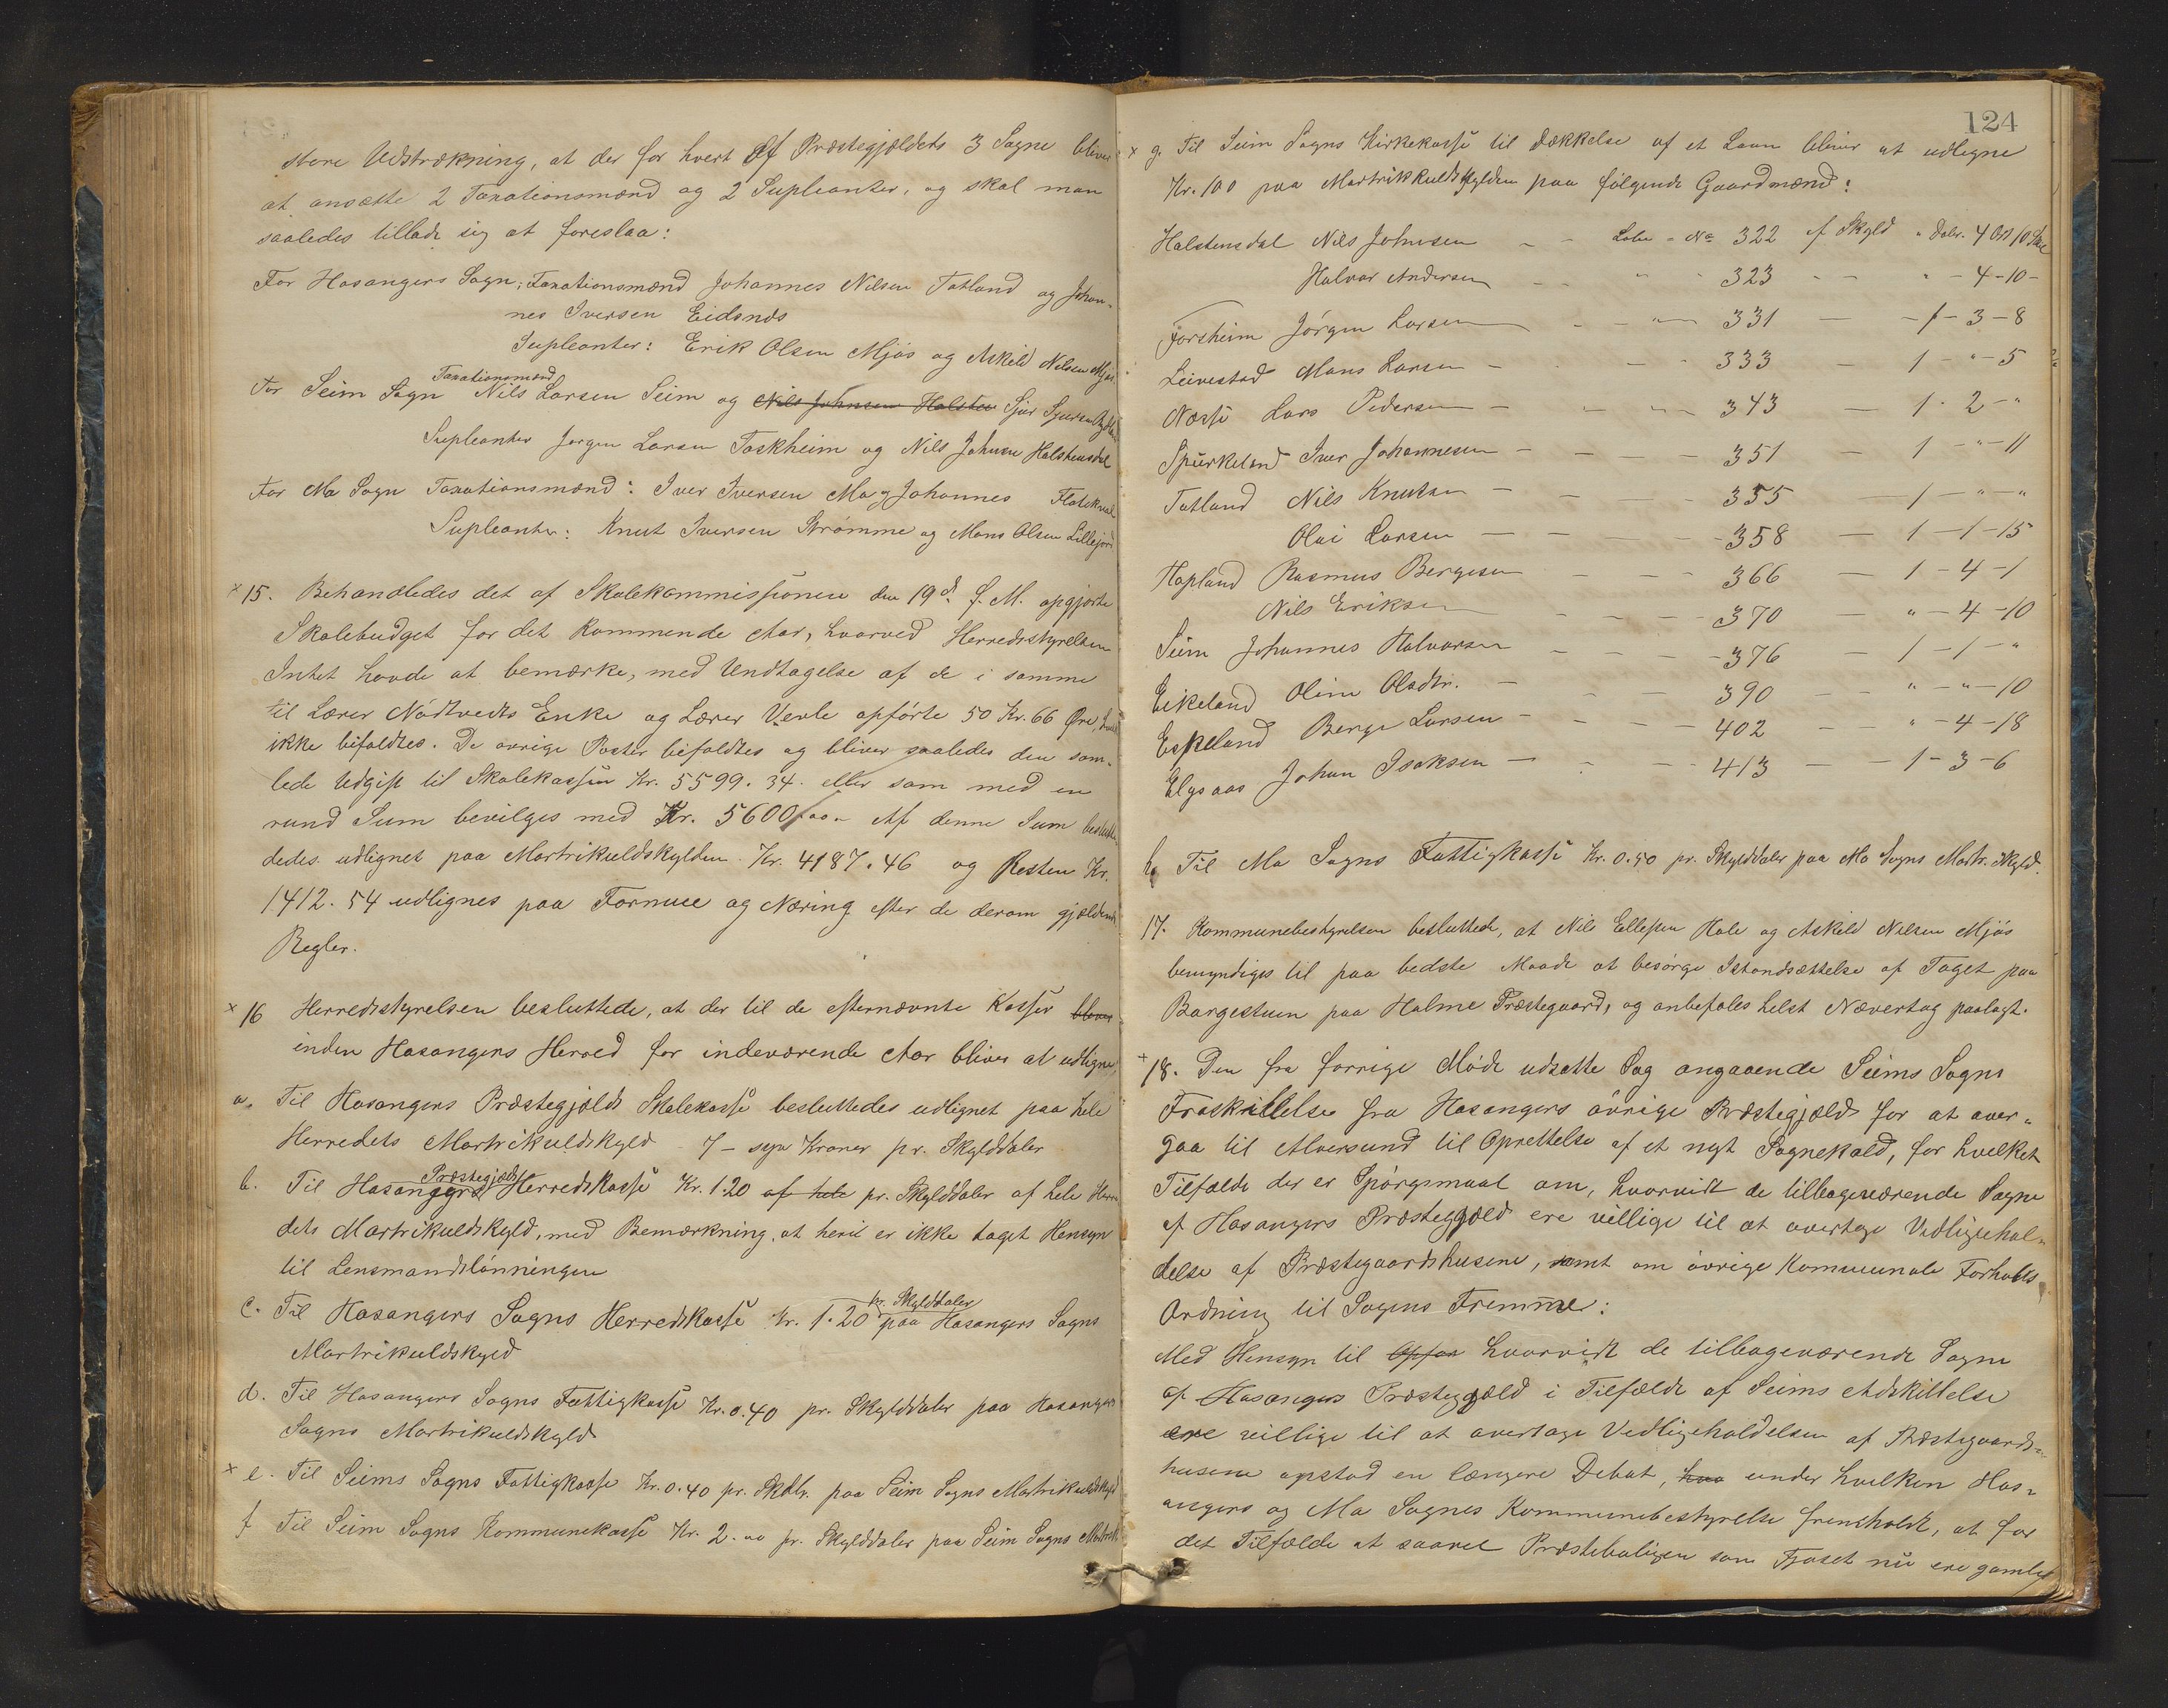 store Udstrækning, at der for hvert af Præstegjældets 3 Sogne bliver
at ansætte 2 Taxationsmænd og 2 Supleanter, og skal man
saaledes tillade sig at foreslaa:
For Hosangers Sogn; Taxationsmænd Johannes Nilsen Tatland og Johan-
nes Iversen Eidsnæs
Supleanter: Erik Olsen Mjøs og Askild Nilsen Mjøs.
Taxationsmænd
For Seim Sogn Nils Larsen Seim og Nils Johnsen Halsten Sjur Sjursen
Supleanter Jørgen Larsen Foskheim og Nils Johnsen Halstensdal
For Mo Sogn Taxationsmænd: Iver Iversen Mo og Johannes Flatekval
Supleanter: Knut Iversen Strømme og Mons Olsen Lillejord
× 15. Behandledes det af Skolekommissionen den 19d. f. M. opgjorte
Skolebudget for det kommende Aar, hvorved Herredsstyrelsen
Intet havde at bemærke, med Undtagelse af de i samme
til Lærer Nødtvedts Enke og Lærer Verle opførte 50 Kr. 66 Øre, hvad
ikke bifaldtes. De øvrige Poster bifaldtes og bliver saaledes den sam-
lede Udgift til Skolekassen Kr. 5599. 34. eller som med en
rund Sum bevilges med Kr. 5600,00. Af denne Sum beslut
dedes udlignet paa Martrikuldskylden Kr. 4187.46 og Resten Kr.
1412. 54 udlignes paa Formue og Næring efter de derom gjældende
Regler.
× 16 Herredsstyrelsen besluttede, at der til de efternævnte Kasser bliver
inden Hosangers Herred for indeværende Aar bliver at udligne,
a. Til Hosangers Præstegjelds Skolekasse besluttedes udlignet paa hele
Herredets Martrikuldskyld 7 - syv Kroner pr. Skylddaler
Præstegjelds
b. Til Hosangers Herredskasse Kr. 1.20 af hele pr. Skylddaler af hele Herre
dets Martrikuldskyld, med Bemærkning, at heri er ikke taget Hensyn
til Lensmandslønningen
pr. Skylddaler
c. Til Hosangers Sogns Herredskasse Kr. 1.20 paa Hosangers Sogns
Martrikuldskyld
d. Til Hosangers Sogns Fattigkasse Kr. 0.40 pr. Skylddaler paa Hosangers
Sogns Martrikuldskyld
× e. Til Seims Sogns Fattigkasse Kr. 0.40 pr. Skdlr. paa Seim Sogns Martrikuldskyld
f Til Seim Sogns Kommunekasse Kr. 2.00 pr. Skylddaler paa Seim Sogns Matrik
124
× g. Til Seim Sogns Kirkekasse til Dækkelse af et Laan bliver at udligne
Kr. 100 paa Martrikkuldskylden paa følgende Gaardmænd:
Halstensdal Nils Johnsen - - Løbe - No 322 af Skyld " Daler. 4 Ort 10 Skl
Halvor Andersen - - " - 323 - - " - 4 - 10 -
Forsheim Jørgen Larsen - - " - 331 - - 1 - 3 - 8
Leivestad Mons Larsen - - - - 333 - 1 - " - 5
Næsse Lars Pedersen - - - 343 - 1 - 2 - "
Spurkeland Iver Johannesen - - - - 351 - 1 - " - 11
Tatland Nils Knutsen - - - - 355 - 1 - " - "
Olai Larsen - - - - 358 - 1 - 1 - 15
Hopland Rasmus Bergesen - - - 366 - 1 - 4 - 1
Nils Eriksen - - - 370 - " - 4 - 10
Seim Johannes Halvorsen - - - - 376 - 1 - 1 - "
Eikeland Oline Olsdtr. - - - 390 - - " - " - 10
Espeland Berge Larsen - - - - 402 - " - 4 - 18
Elysaas Johan Isaksen - - - - 413 - - 1 - 3 - 6
h. Til Mo Sogns Fattigkasse Kr. 0.50 pr. Skylddaler paa Mo Sogns Martr. skyld.
17. Kommunebestyrelsen besluttede, at Nils Ellefsen Hole og Askild Nilsen Mjøs
bemyndiges til paa bedste Maade at besørge Istandsættelse af Taget paa
Borgestuen paa Holme Præstegaard, og anbefales helst Nævertag paalagt.
+ 18. Den fra forrige Møde udsatte Sag angaaende Seims Sogns
Fraskillelse fra Hosangers øvrige Præstegjæld for at over-
gaa til Alversund til Oprettelse af et nyt Sognekald, for hvilket
Tilfælde der er Spørgsmaal om, hvorvidt de tilbageværende Sogne
af Hosangers Præstegjæld ere villige til at overtage Vedligehol-
delse af Præstegaardshusene, samt om øvrige Kommunale Forholds
Ordning til Sagens Fremme:
Med Hensyn til Opfør hvorvidt de tilbageværende Sogne
af Hosangers Præstegjæld i Tilfælde af Seims Adskillelse
ere villige til at overtage Vedligeholdelsen af Præstegaards-
husene opstod en længere Debat, hvo under hvilken Hos-
angers og Mo Sognes Kommunebestyrelse fremholdt, at for
det Tilfælde at saavel Præsteboligen som Fjøset nu ere gamle